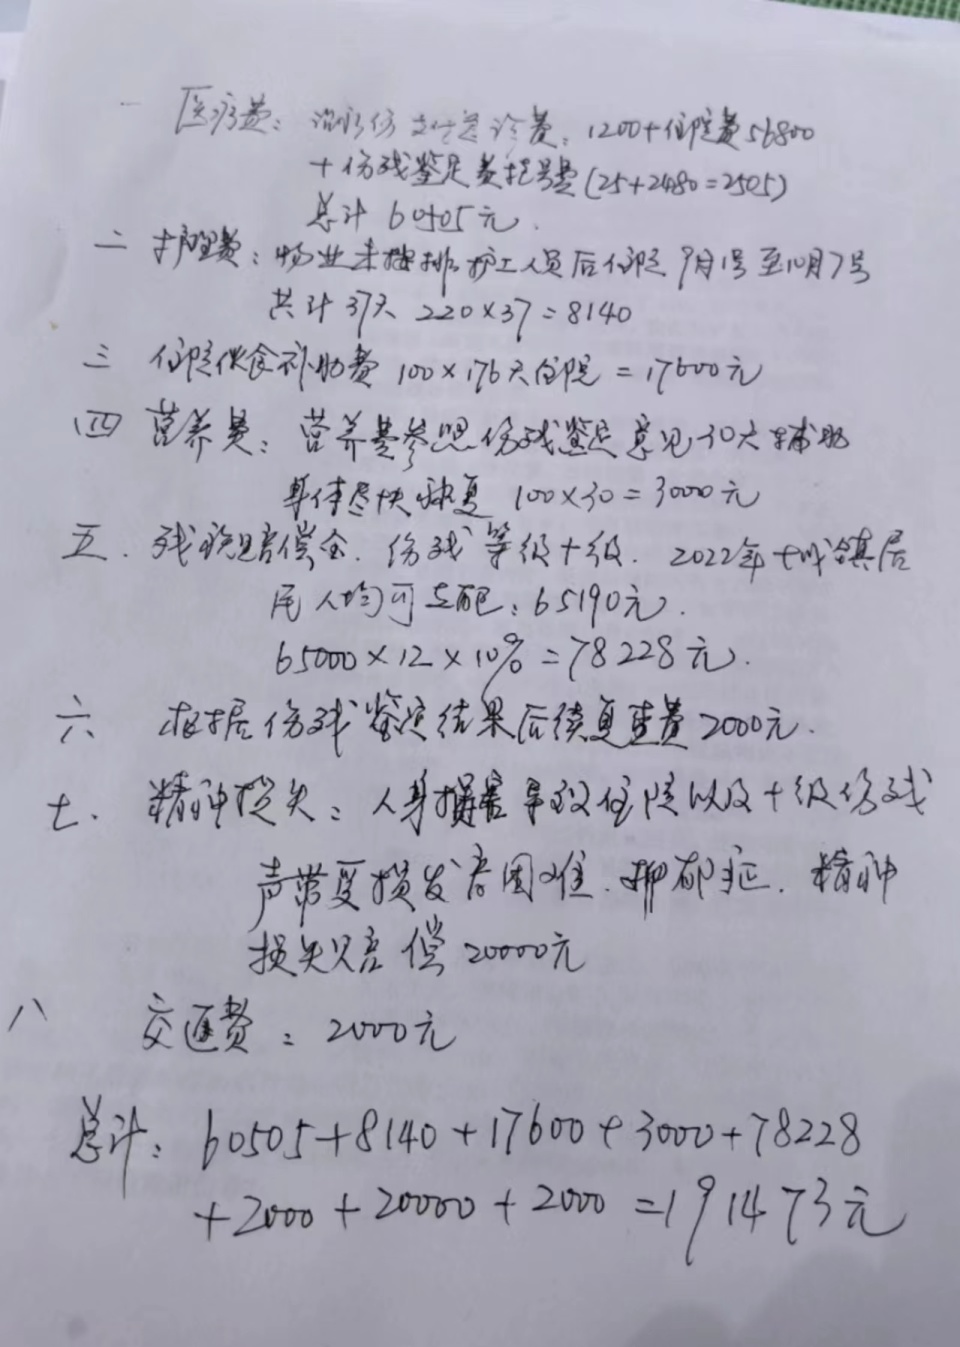 一 医疗费: 支付急诊费: 1200+住院费56800
+伤残鉴定费挂号费(25+2480=2505)
总计 60505元.
二 护理费: 物业未按排护工人员后住院 9月1号至10月7号
共计37天 220×37=8140
三 住院伙食补助费 100×176天住院 =17600元
四 营养费: 营养费参照伤残鉴定意见30天辅助
身体尽快恢复 100×30=3000元
五. 残疾赔偿金. 伤残等级十级. 2022年 城镇居
民人均可支配: 65190元.
65000×12×10%=78228元.
六 根据伤残鉴定结果后续复查费2000元.
七. 精神损失: 人身损害导致住院以及十级伤残
声带受损发音困难. 抑郁症. 精神
损失赔偿20000元
八 交通费: 2000元
总计: 60505+8140+17600+3000+78228
+2000+20000+2000=191473元